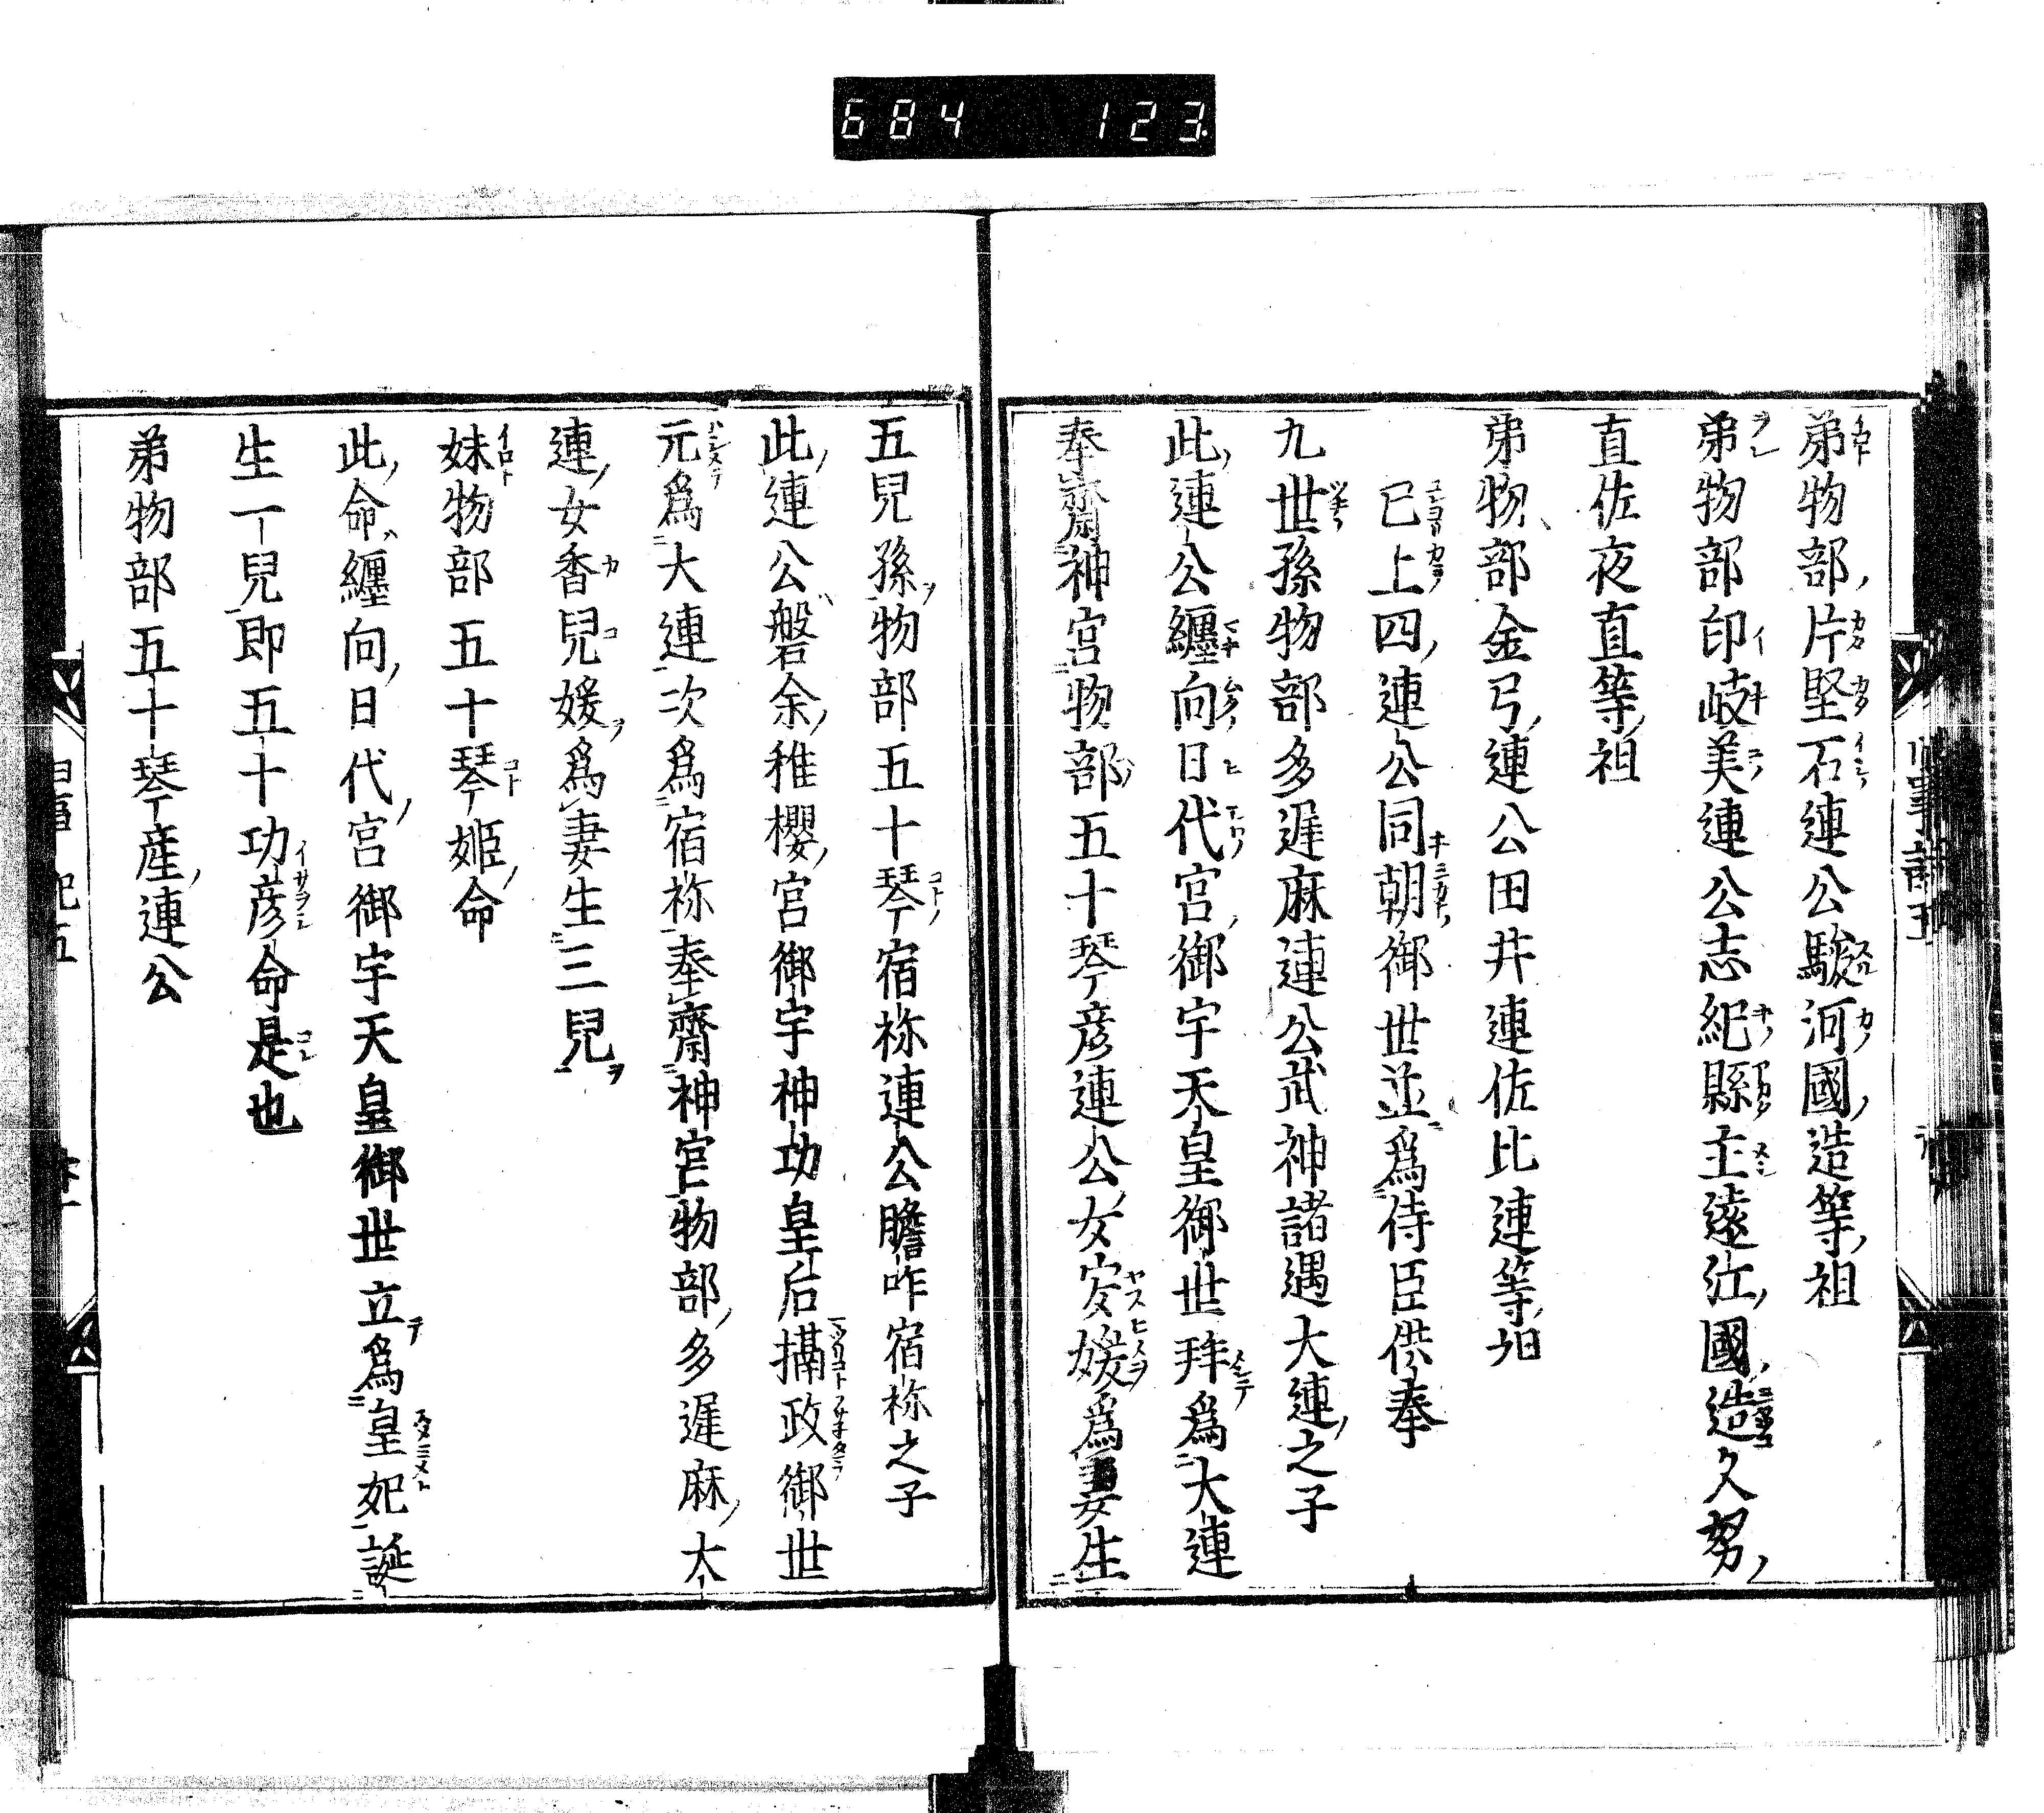 684 123.
弟物部片堅石連公駿河國造等祖
弟物部印岐美連公志紀縣主遠江國造久努
直佐夜直等祖
弟物部金弓連公田井連佐比連等祖
已上四連公同朝御世並爲侍臣供奉
九世孫物部多遅麻連公武神諸遇大連之子
此連公纏向日代宮御宇天皇御世拜爲大連
奉齋神宮物部五十琴彦連公女安媛爲妻生
五兒孫物部五十琴宿祢連公膽咋宿祢之子
此連公磐余稚櫻宮御宇神功皇后攝政御世
元爲大連次爲宿祢奉齋神宮物部多遅麻大
連女香兒媛爲妻生三兒
妹物部五十琴姫命
此命纏向日代宮御宇天皇御世立爲皇妃誕
生一兒即五十功彦命是也
弟物部五十琴産連公